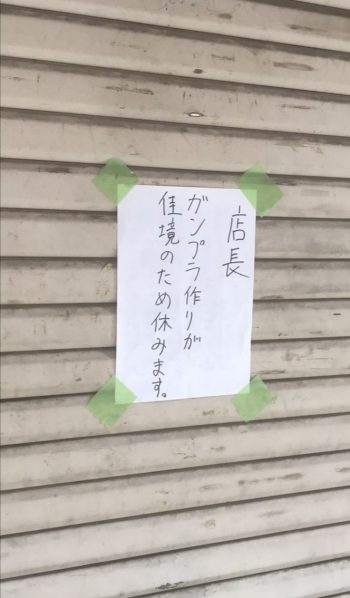 店長
ガンプラ作りが
佳境のため休みます。